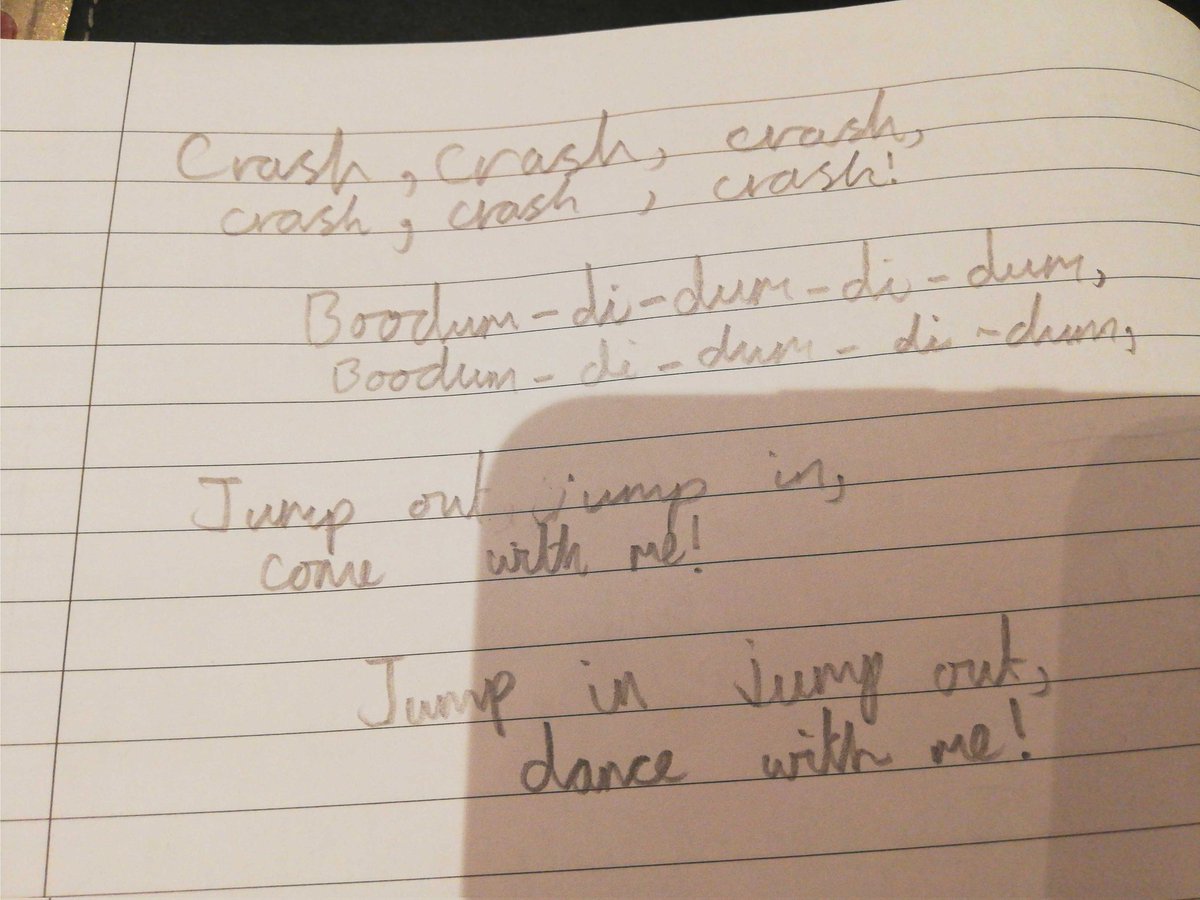 Crash, crash, crash,
crash, crash, crash!
Boodum-di-dum-di-dum,
Boodum-di-dum-di-dum,
Jump out, jump in,
come with me!
Jump in jump out,
dance with me!